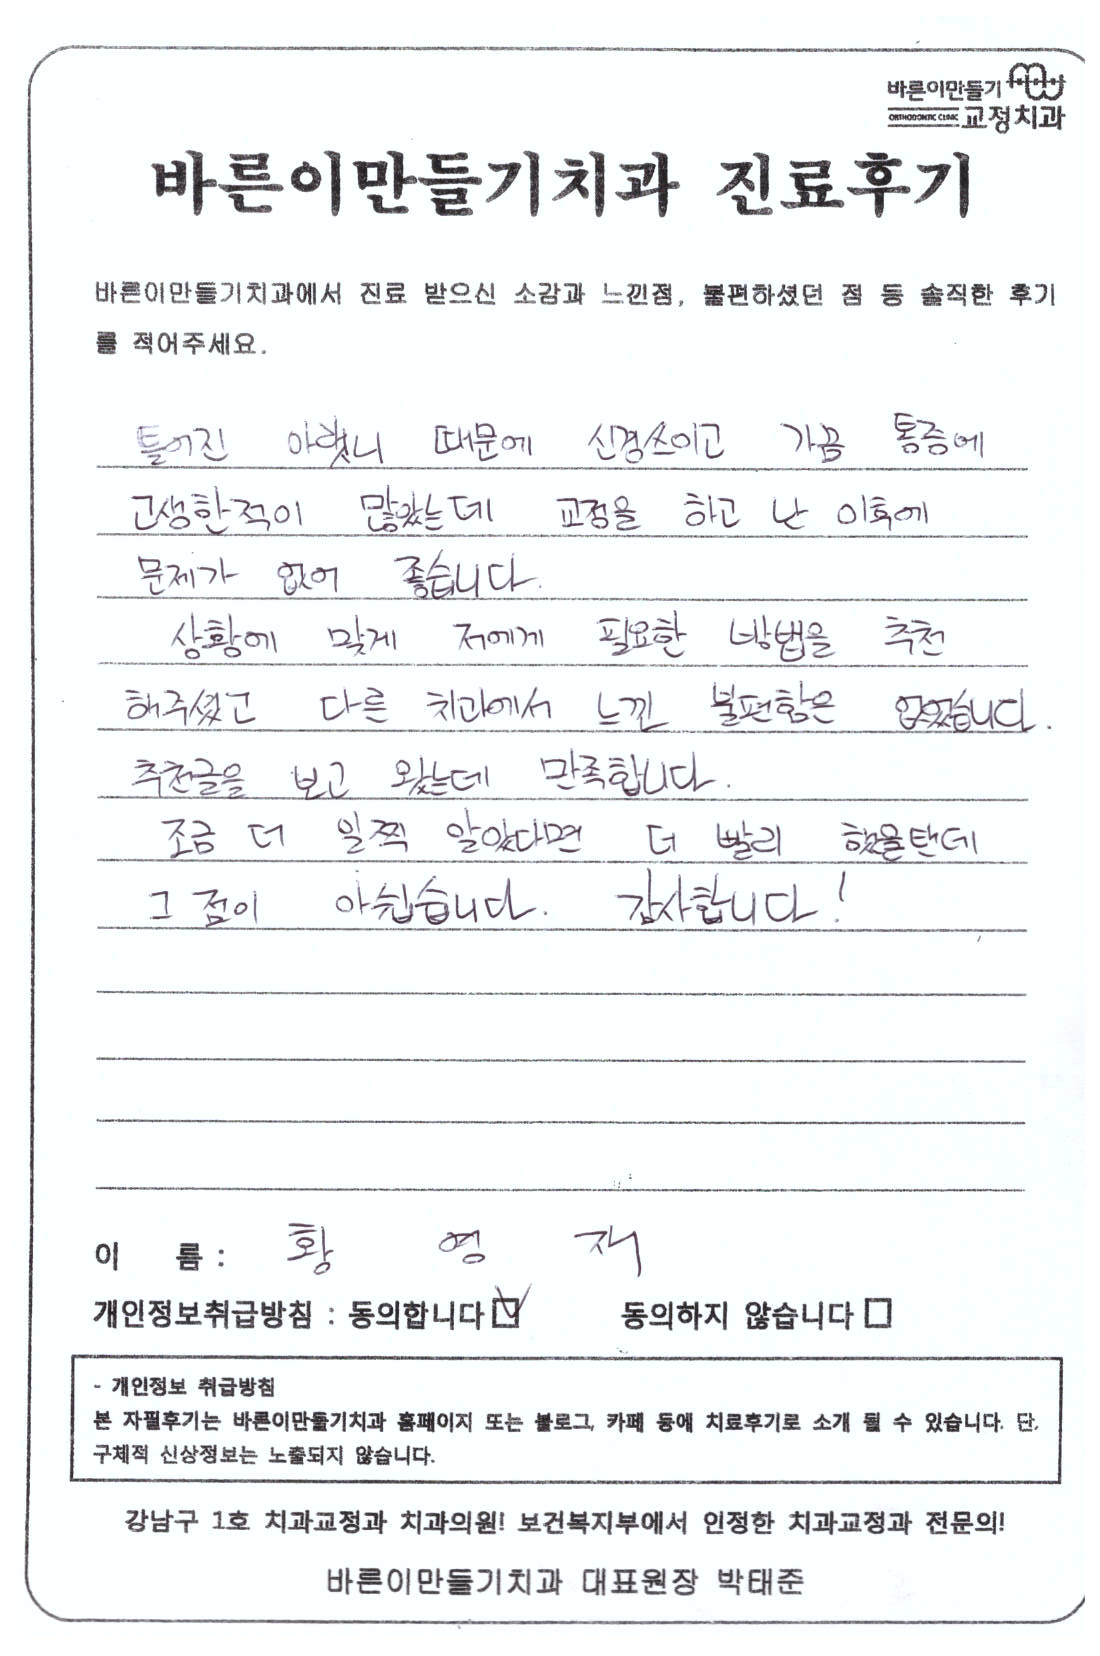 바른이만들기
ORTHODONTIC CLINIC 교정치과
바른이만들기치과 진료후기
바른이만들기치과에서 진료 받으신 소감과 느낀점, 불편하셨던 점 등 솔직한 후기
를 적어주세요.
틀어진 아랫니 때문에 신경쓰이고 가끔 통증에
고생한적이 많았는데 교정을 하고 난 이후에
문제가 없어 좋습니다.
상황에 맞게 저에게 필요한 방법을 추천
해주셨고 다른 치과에서 느낀 불편함은 없었습니다.
추천글을 보고 왔는데 만족합니다.
조금 더 일찍 알았다면 더 빨리 했을텐데
그 점이 아쉽습니다. 감사합니다!
이 름 : 황 영 재
개인정보취급방침 : 동의합니다 동의하지 않습니다
- 개인정보 취급방침
본 자필후기는 바른이만들기치과 홈페이지 또는 블로그, 카페 등에 치료후기로 소개 될 수 있습니다. 단,
구체적 신상정보는 노출되지 않습니다.
강남구 1호 치과교정과 치과의원! 보건복지부에서 인정한 치과교정과 전문의!
바른이만들기치과 대표원장 박태준